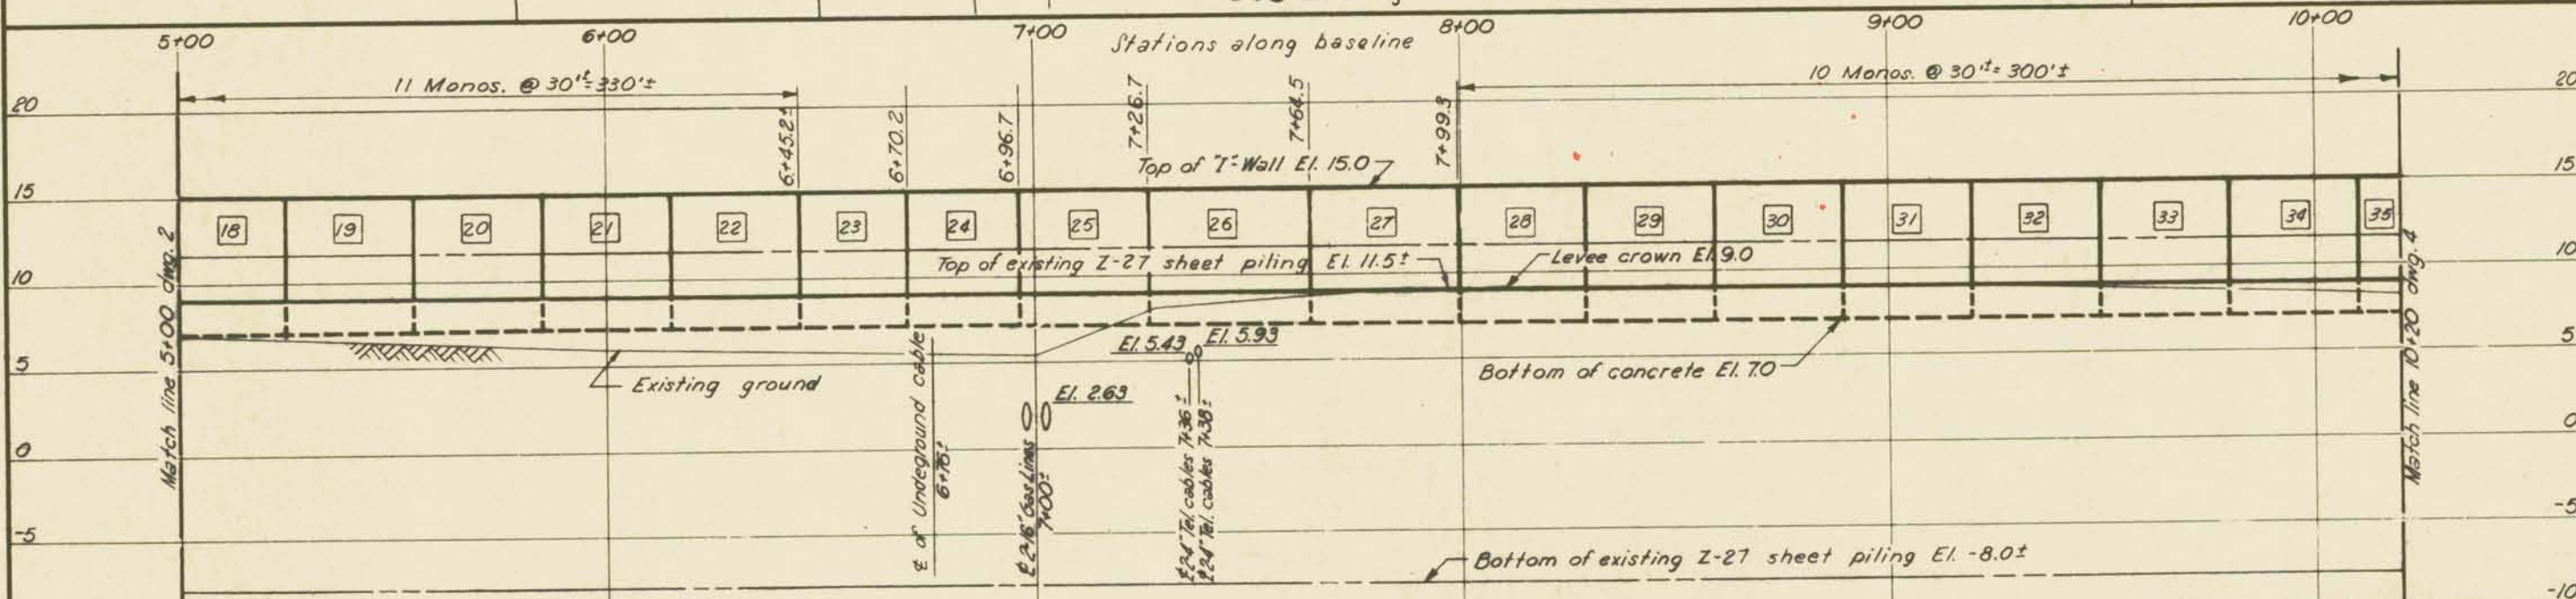 5+00 6+00 7+00 8+00 9+00 10+00
Stations along baseline
11 Monos. @ 30'±=330'±
10 Monos. @ 30'±=300'±
6+45.2±
6+70.2
6+96.7
7+26.7
7+64.5
7+99.3
20 20
Top of "I"-Wall El. 15.0
15 15
18 19 20 21 22 23 24 25 26 27 28 29 30 31 32 33 34 35
Top of existing Z-27 sheet piling El. 11.5±
Levee crown El. 9.0
10 10
Match line 5+00 dwg. 2
Match line 10+20 dwg. 4
El. 5.43 El. 5.93
5 5
Existing ground
Bottom of concrete El. 7.0
El. 2.63
℄ of Undeground cable
6+76±
℄ 2-16" Gas Lines
7+00±
℄ 2-4" Tel. cables 7+36±
℄ 2-4" Tel. cables 7+38±
0 0
-5 -5
Bottom of existing Z-27 sheet piling El. -8.0±
-10